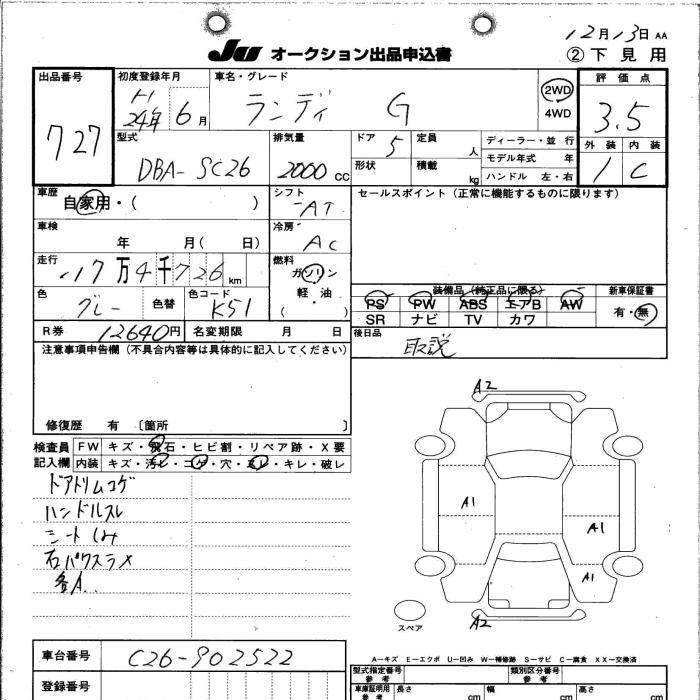 12月13日 AA
JU オークション出品申込書
②下見用
出品番号
727
初度登録年月
H
24年 6月
車名・グレード
ランディ G
2WD
4WD
評価点
3.5
外装 内装
1 C
型式
DBA-SC26
排気量
2000 CC
ドア 5
形状
定員 人
積載 kg
ディーラー・並行
モデル年式 年
ハンドル 左・右
車歴
自家用・( )
シフト
AT
セールスポイント(正常に機能するものに限ります)
車検
年 月( 日)
冷房
AC
走行
17万4千726 km
燃料
ガソリン
軽・油
( )
色
グレー
色替
色コード
K51
装備品(純正品に限る)
PS PW ABS エアB AW
SR ナビ TV カワ
新車保証書
有・無
R券 12640円
名変期限 月 日
後日品
取説
注意事項申告欄(不具合内容等は具体的に記入してください)
修復歴 有 〔箇所 〕
検査員
記入欄
FW キズ・飛石・ヒビ割・リペア跡・X要
内装 キズ・汚レ・コゲ・穴・スレ・キレ・破レ
ドアトリムコゲ
ハンドルスレ
シートしみ
右パワスラメ
各A..
A2
A1
A1
A1
A2
スペア
車台番号
C26-902522
登録番号
A-キズ E-エクボ U-凹み W-補修跡 S-サビ C-腐食 XX-交換済
型式指定番号
参考
類別区分番号
参考
車庫証明用
参考
長さ cm
幅 cm
高さ cm